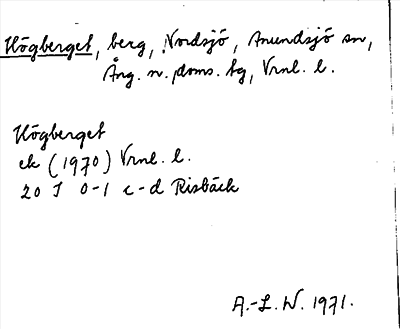 Högberget, berg, Nordsjö, Anundsjö sn,
Ång. n. doms. tg, Vrnl. l.
Högberget
ek (1970) Vrnl. l.
20 J 0-1 c-d Risbäck
A.-L. W. 1971.